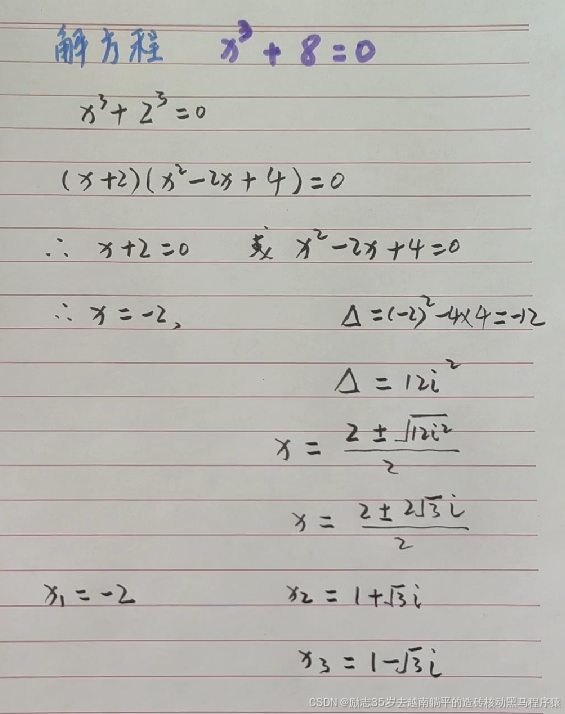 解方程 x³ + 8 = 0
x³ + 2³ = 0
(x+2)(x²-2x+4) = 0
∴ x+2=0 或 x²-2x+4=0
∴ x = -2, Δ = (-2)²-4×4 = -12
Δ = 12i²
x = (2 ± √(12i²))/2
x = (2 ± 2√3 i)/2
x₁ = -2 x₂ = 1+√3 i
x₃ = 1-√3 i
CSDN @励志35岁去越南躺平的造砖核动黑马程序猿